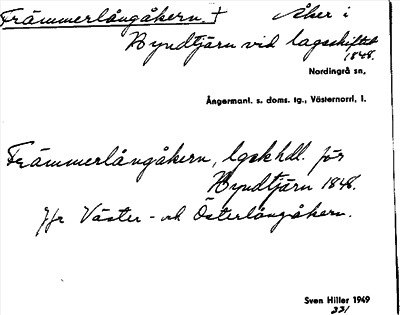 Främmerlångåkern † Åker i
Byndtjärn vid lagaskiftet
1848.
Nordingrå sn,
Ångermanl. s. doms. tg., Västernorrl. l.
Främmerlångåkern, lgsk hdl. för
Byndtjärn 1848.
Jfr Väster- och Österlångåkern.
Sven Hiller 1949
221